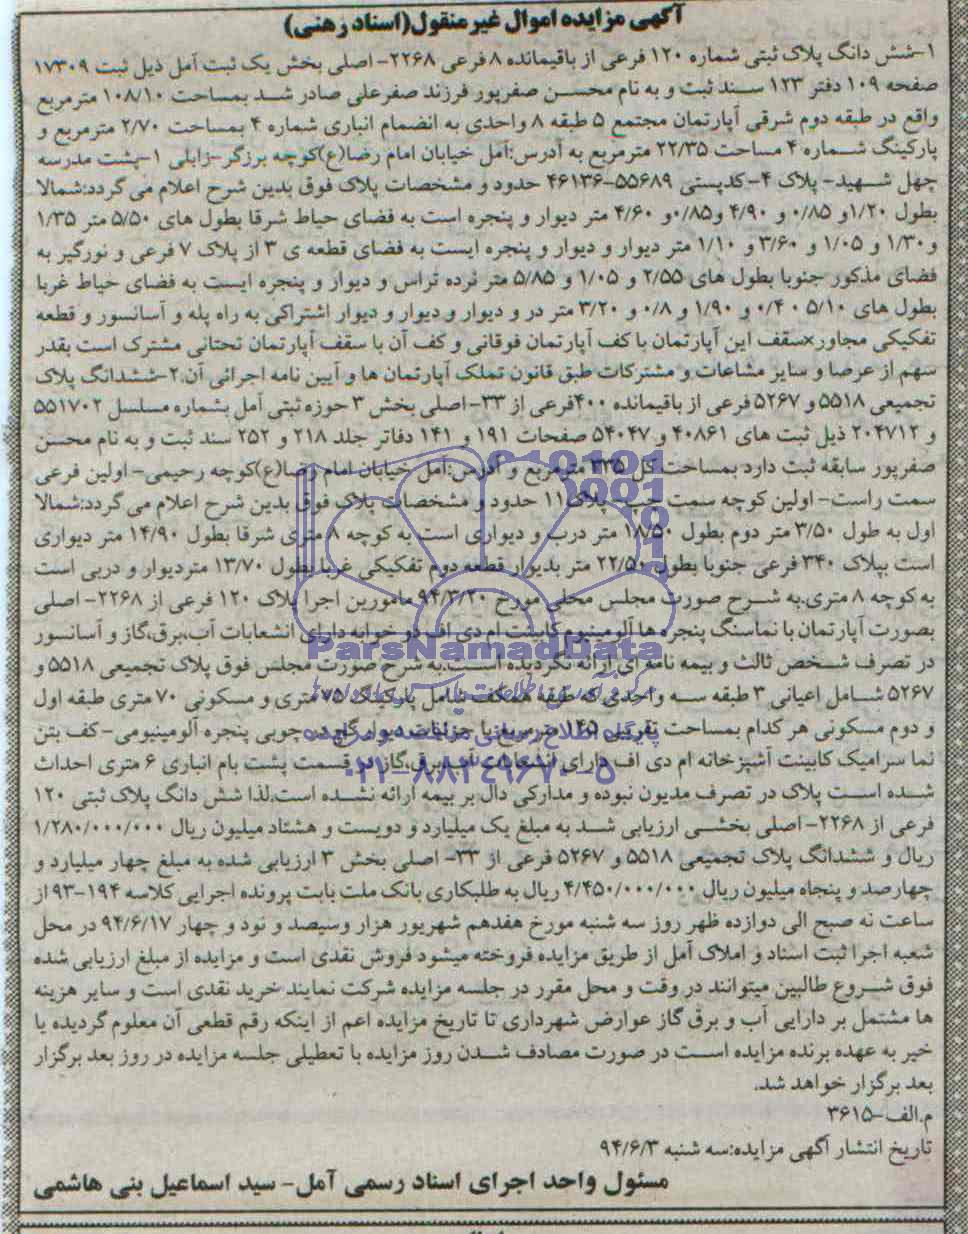 آگهی مزایده اموال غیر منقول(اسناد رهنی)
۱-شش دانگ پلاک ثبتی شماره ۱۲۰ فرعی از باقیمانده ۸ فرعی ۲۲۶۸- اصلی بخش یک ثبت آمل ذیل ثبت ۱۷۳۰۹
صفحه ۱۰۹ دفتر ۱۲۳ سند ثبت و به نام محسن صفرپور فرزند صفرعلی صادر شد بمساحت ۱۰۸/۱۰ مترمربع
واقع در طبقه دوم شرقی آپارتمان مجتمع ۵ طبقه ۸ واحدی به انضمام انباری شماره ۴ بمساحت ۲/۷۰ مترمربع و
پارکینگ شماره ۴ مساحت ۲۲/۳۵ مترمربع به آدرس:آمل خیابان امام رضا(ع)کوچه برزگر-زابلی ۱-پشت مدرسه
چهل شهید- پلاک ۴-کدپستی ۵۵۶۸۹-۴۶۱۳۶ حدود و مشخصات پلاک فوق بدین شرح اعلام می گردد:شمالا
بطول ۱/۲۰و ۰/۸۵ و ۴/۹۰ و۰/۸۵و ۴/۶۰ متر دیوار و پنجره است به فضای حیاط شرقا بطول های ۵/۵۰ متر ۱/۳۵
و۱/۳۰ و ۱/۰۵ و ۳/۶۰ و ۱/۱۰ متر دیوار و دیوار و پنجره ایست به فضای قطعه ی ۳ از پلاک ۷ فرعی و نورگیر به
فضای مذکور جنوبا بطول های ۲/۵۵ و ۱/۰۵ و ۵/۸۵ متر نرده تراس و دیوار و پنجره ایست به فضای حیاط غربا
بطول های ۵/۱۰ ۰ ۰/۴ و ۱/۹۰ و ۰/۸ و ۳/۲۰ متر در و دیوار و دیوار و دیوار اشتراکی به راه پله و آسانسور و قطعه
تفکیکی مجاور×سقف این آپارتمان با کف آپارتمان فوقانی و کف آن با سقف آپارتمان تحتانی مشترک است بقدر
سهم از عرصا و سایر مشاعات و مشترکات طبق قانون تملک آپارتمان ها و آیین نامه اجرائی آن.۲-ششدانگ پلاک
تجمیعی ۵۵۱۸ و ۵۲۶۷ فرعی از باقیمانده ۴۰۰فرعی از ۳۳- اصلی بخش ۳ حوزه ثبتی آمل بشماره مسلسل ۵۵۱۷۰۲
و ۲۰۴۷۱۲ ذیل ثبت های ۴۰۸۶۱ و ۵۴۰۴۷ صفحات ۱۹۱ و ۱۴۱ دفاتر جلد ۲۱۸ و ۲۵۲ سند ثبت و به نام محسن
صفرپور سابقه ثبت دارد بمساحت کل ۳۳۵ مترمربع و آدرس:آمل خیابان امام رضا(ع)کوچه رحیمی- اولین فرعی
سمت راست- اولین کوچه سمت چپ-پلاک ۱۱ حدود و مشخصات پلاک فوق بدین شرح اعلام می گردد:شمالا
اول به طول ۳/۵۰ متر دوم بطول ۱۸/۵۰ متر درب و دیواری است به کوچه ۸ متری شرقا بطول ۱۴/۹۰ متر دیواری
است بپلاک ۳۴۰ فرعی جنوبا بطول ۲۲/۵۰ متر بدیوار قطعه دوم تفکیکی غربا بطول ۱۳/۷۰ متردیوار و دربی است
به کوچه ۸ متری.به شرح صورت مجلس محلی مورخ ۹۴/۳/۲۰ مامورین اجرا پلاک ۱۲۰ فرعی از ۲۲۶۸- اصلی
بصورت آپارتمان با نماسنگ پنجره ها آلومینیوم کابینت ام دی اف دو خوابه دارای انشعابات آب،برق،گاز و آسانسور
در تصرف شخص ثالث و بیمه نامه ای ارائه نگردیده است.به شرح صورت مجلس فوق پلاک تجمیعی ۵۵۱۸ و
۵۲۶۷ شامل اعیانی ۳ طبقه سه واحدی که طبقه همکف شامل پارکینگ ۷۵ متری و مسکونی ۷۰ متری طبقه اول
و دوم مسکونی هر کدام بمساحت تقریبی ۱۴۵ مترمربع با جزئیات دیوار گچ در چوبی پنجره آلومینیومی-کف بتن
نما سرامیک کابینت آشپزخانه ام دی اف دارای انشعابات آب،برق،گاز در قسمت پشت بام انباری ۶ متری احداث
شده است پلاک در تصرف مدیون نبوده و مدارکی دال بر بیمه ارائه نشده است.لذا شش دانگ پلاک ثبتی ۱۲۰
فرعی از ۲۲۶۸- اصلی بخشی ارزیابی شد به مبلغ یک میلیارد و دویست و هشتاد میلیون ریال ۱/۲۸۰/۰۰۰/۰۰۰
ریال و ششدانگ پلاک تجمیعی ۵۵۱۸ و ۵۲۶۷ فرعی از ۳۳- اصلی بخش ۳ ارزیابی شده به مبلغ چهار میلیارد و
چهارصد و پنجاه میلیون ریال ۴/۴۵۰/۰۰۰/۰۰۰ ریال به طلبکاری بانک ملت بابت پرونده اجرایی کلاسه ۱۹۴-۹۳ از
ساعت نه صبح الی دوازده ظهر روز سه شنبه مورخ هفدهم شهریور هزار وسیصد و نود و چهار ۹۴/۶/۱۷ در محل
شعبه اجرا ثبت اسناد و املاک آمل از طریق مزایده فروخته میشود فروش نقدی است و مزایده از مبلغ ارزیابی شده
فوق شروع طالبین میتوانند در وقت و محل مقرر در جلسه مزایده شرکت نمایند خرید نقدی است و سایر هزینه
ها مشتمل بر دارایی آب و برق گاز عوارض شهرداری تا تاریخ مزایده اعم از اینکه رقم قطعی آن معلوم گردیده یا
خیر به عهده برنده مزایده است در صورت مصادف شدن روز مزایده با تعطیلی جلسه مزایده در روز بعد برگزار
بعد برگزار خواهد شد.
م.الف-۳۶۱۵
تاریخ انتشار آگهی مزایده:سه شنبه ۹۴/۶/۳
مسئول واحد اجرای اسناد رسمی آمل- سید اسماعیل بنی هاشمی
ParsNamadData
پایگاه اطلاع رسانی مناقصه و مزایده
۰۲۱-۸۸۳۴۹۶۷۰-۵